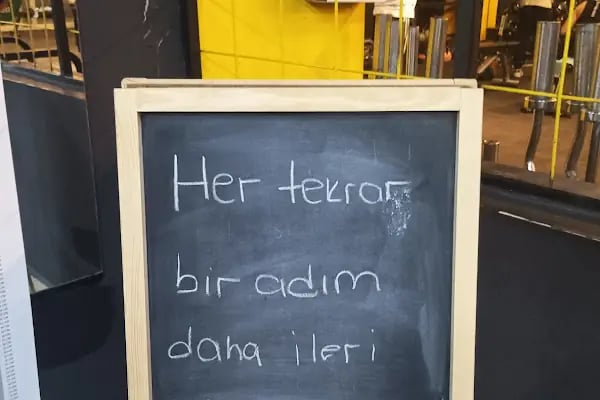 Her tekrar
bir adım
daha ileri